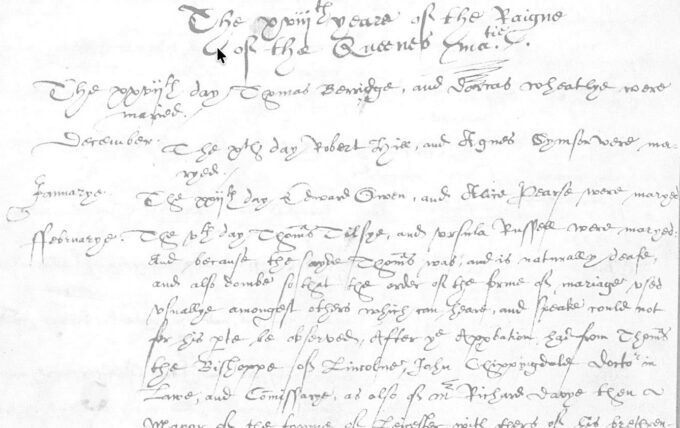 The xviijth yeare of the Raigne
of the Queenes matie.
The xxvijth day Thomas Berridge, and Dorcas Wheatlye were
maried.
December. The xth day Robert Hill, and Agnes Symson were ma-
ryed.
Januarye The xijth day Edward Owen, and Alice Pearse were maryed
ffebruarye. The vth day Thoms Tilsye, and Ursula Russell were maryed:
And because the sayde Thoms was, and is naturally deafe,
and also dombe so that the order of the forme of mariage used
usuallye amongest others which can heare, and speake could not
for his pte be observed, After ye Appbation had from Thoms
the Bishoppe of Lincolne, John Chippingdale doctor in
Lawe, and Comissarye, as also of Mr Richard Davye then
Maior of the towne of Leicester with others of his brethren-